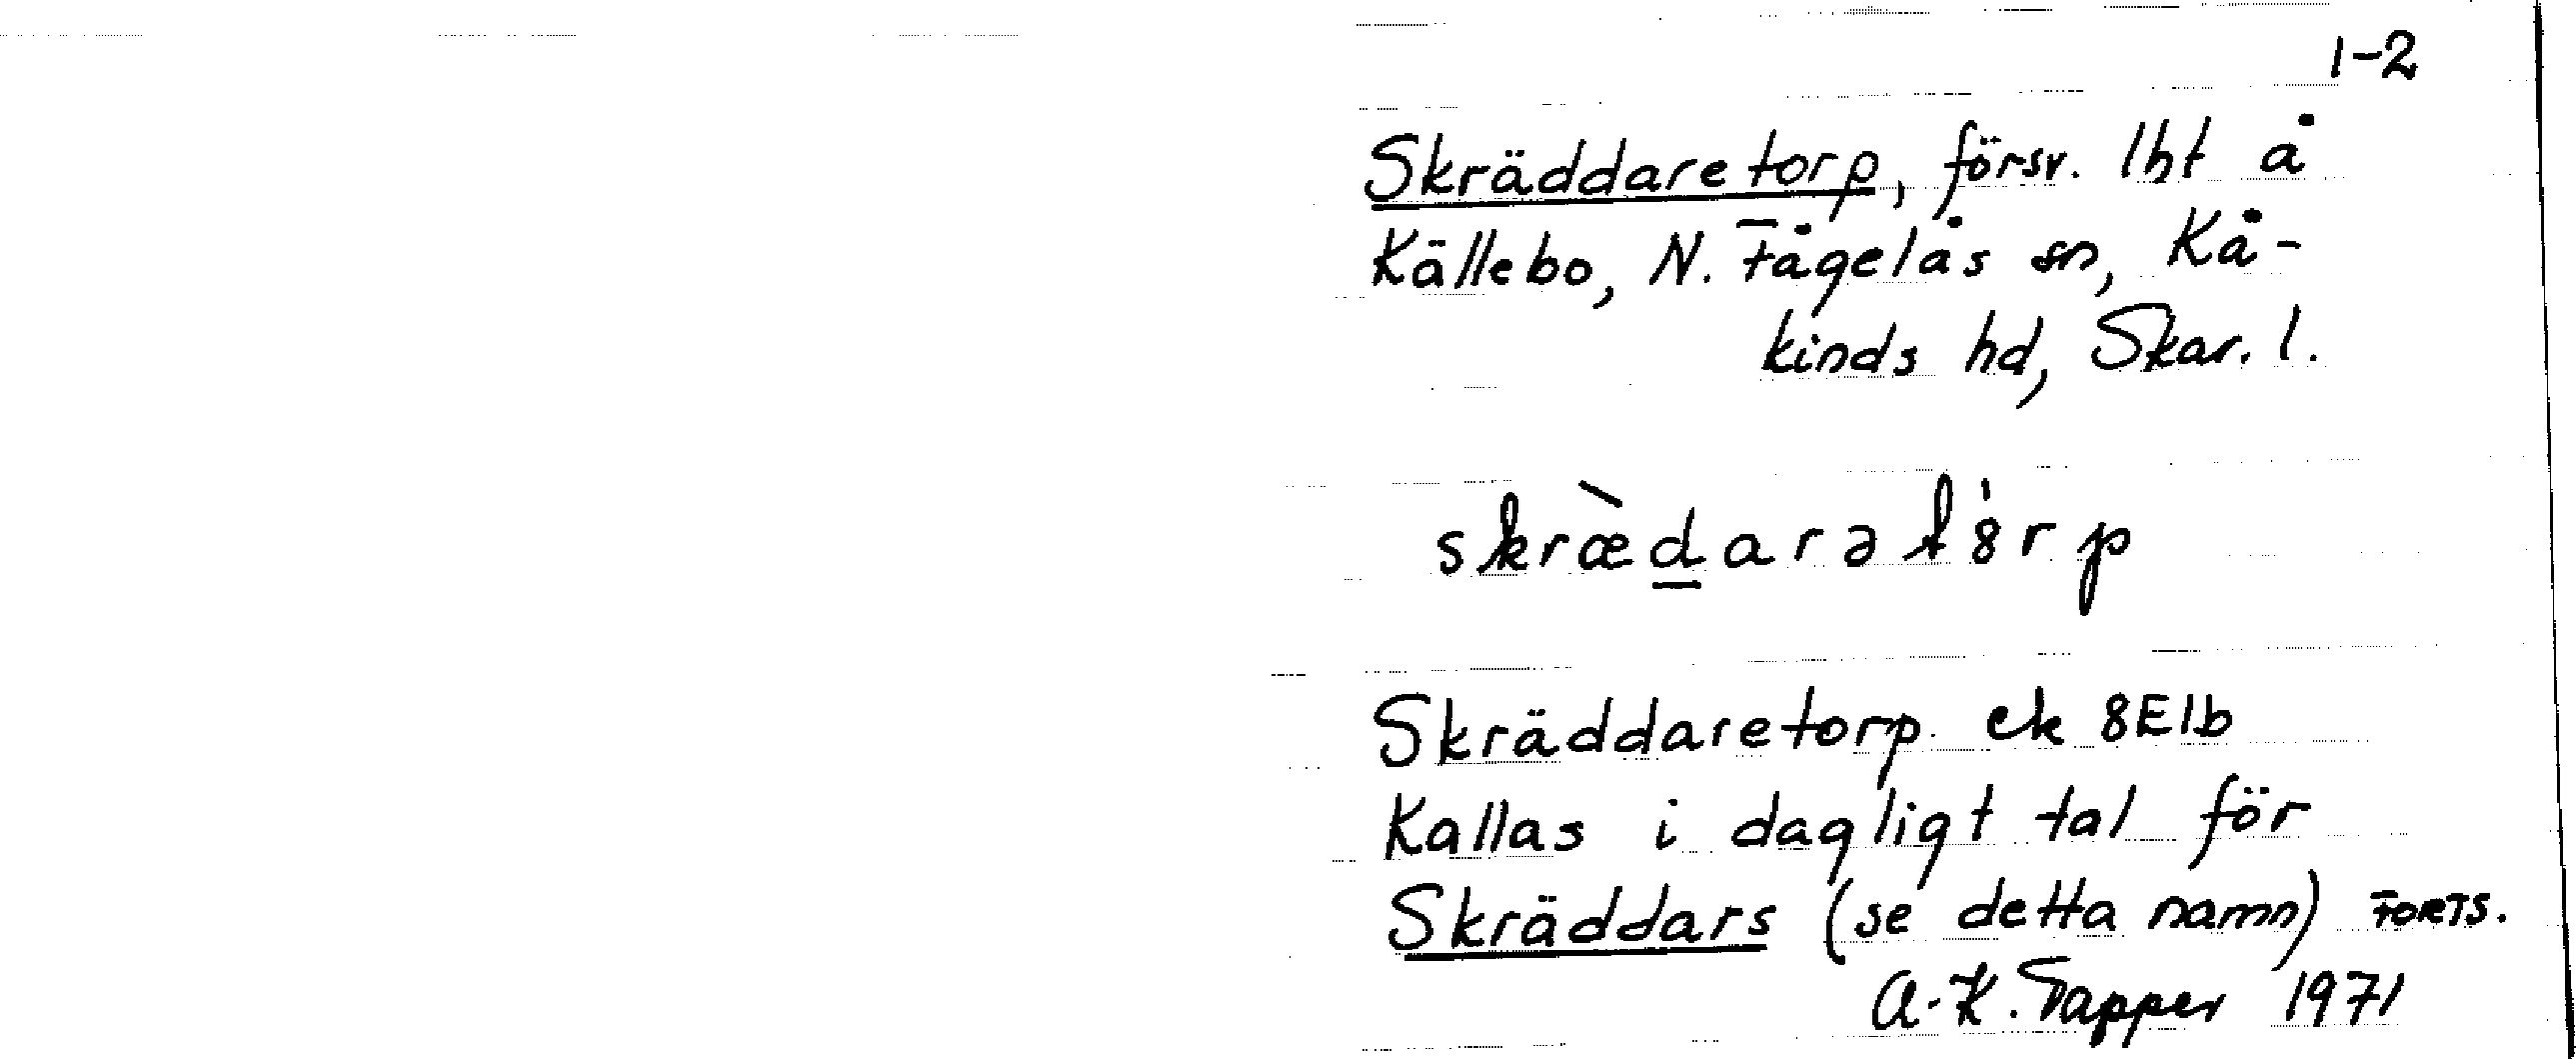 1-2
Skräddaretorp, försv. lht å
Källebo, N. Fågelås sn, Kå-
kinds hd, Skar. l.
skræ̀darətȯrp
Skräddaretorp. ek 8E1b
Kallas i dagligt tal för
Skräddars (se detta namn) FORTS.
A.-K. Tapper 1971